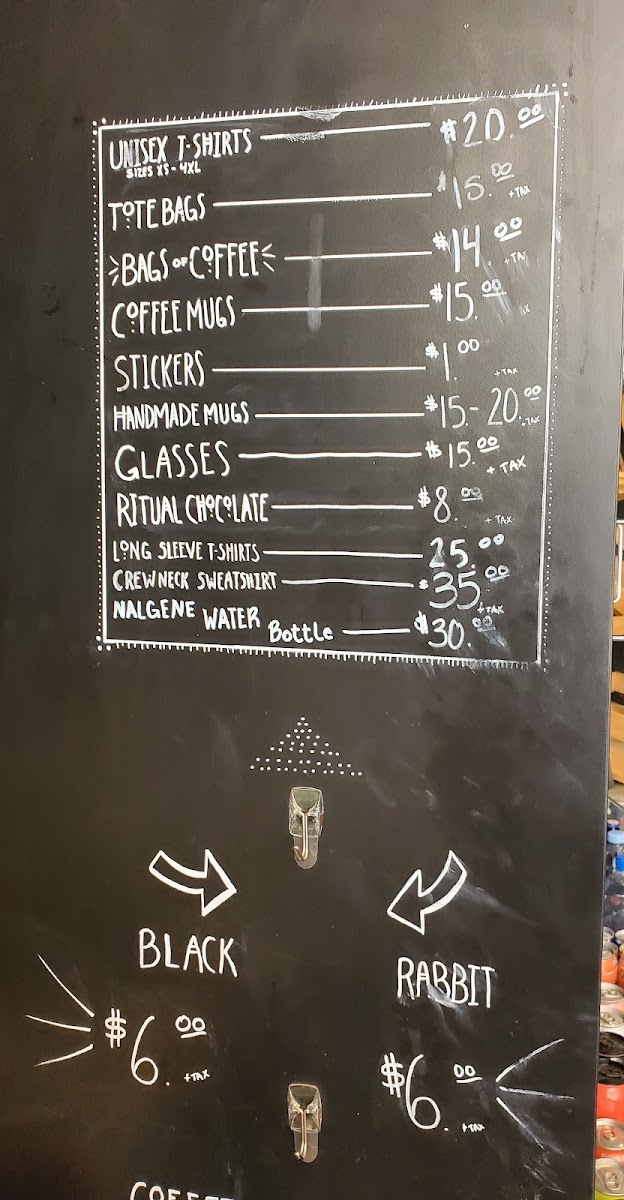 UNISEX T-SHIRTS $20.00
SIZES XS - 4XL
TOTE BAGS $15.00 +TAX
BAGS OF COFFEE $14.00 +TA
COFFEE MUGS $15.00
STICKERS $1.00 +TAX
HANDMADE MUGS $15.-20.00 +TAX
GLASSES $15.00 + TAX
RITUAL CHOCOLATE $8.00 + TAX
LONG SLEEVE T-SHIRTS 25.00
CREWNECK SWEATSHIRT $35.00 +TAX
NALGENE WATER Bottle $30.00
BLACK RABBIT
$6.00 +TAX $6.00 +TAX